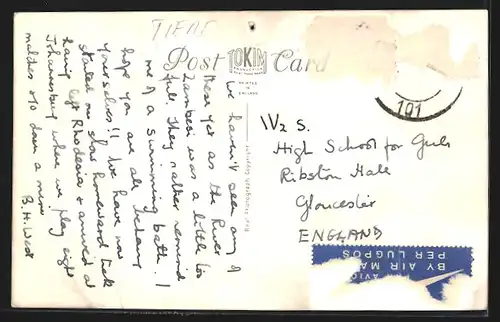 TIERE
Post TOKIM Card
PRINTED IN ENGLAND
101
We haven't seen any of
these yet as the River
Zambesi was a little too
full. They rather remind
me of a swimming bath. I
hope you are all behaving
yourselves!! We have now
started our slow homeward trek
having left Rhodesia & arrived at
Johannesburg where we play eight
matches & go down a mine
B.H. West
High School for Girls
Ribston Hall
Gloucester
ENGLAND
BY AIR MAIL
PER LUGPOS